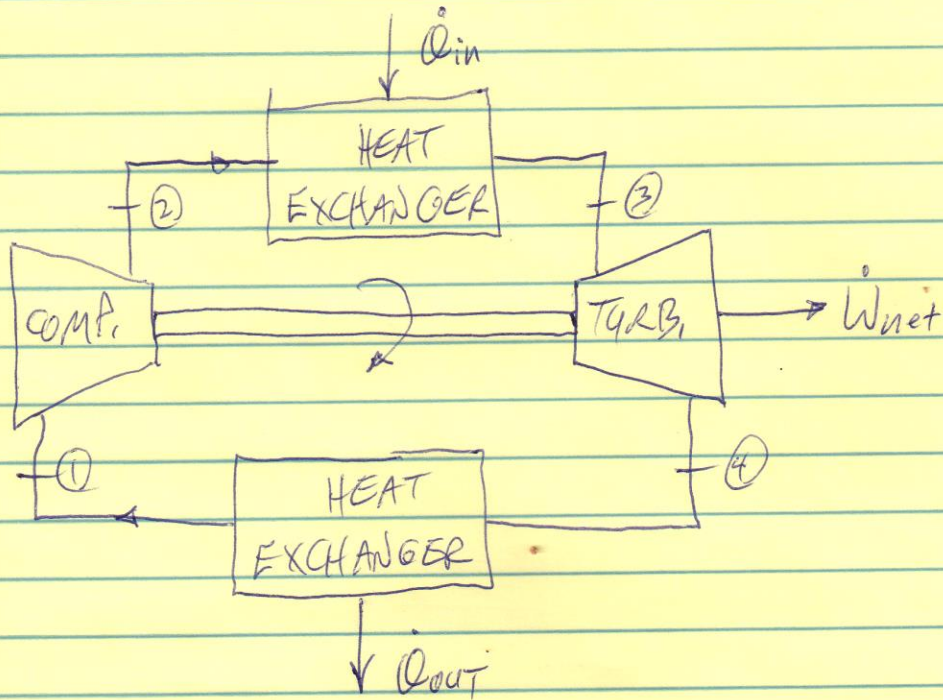 Q̇in
HEAT
EXCHANGER
②
③
COMP.
TURB.
Ẇnet
①
④
HEAT
EXCHANGER
Q̇OUT